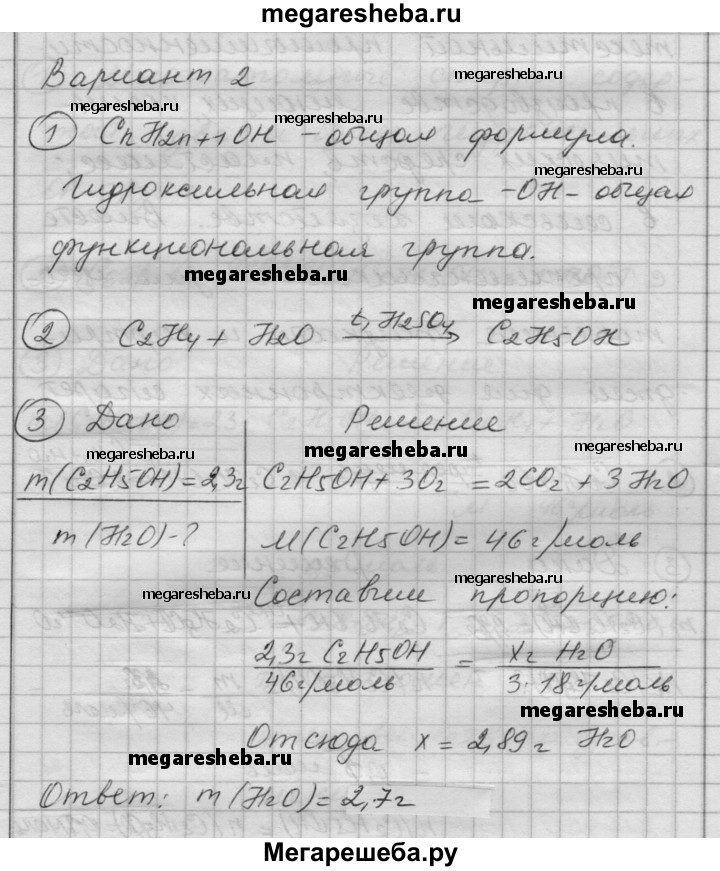 megaresheba.ru
Вариант 2
megaresheba.ru
megaresheba.ru
megaresheba.ru
1 CnH2n+1OH – общая формула.
megaresheba.ru
Гидроксильная группа –OH– общая
функциональная группа.
megaresheba.ru
megaresheba.ru
2 C2H4 + H2O t, H2SO4 → C2H5OH
3 Дано Решение
megaresheba.ru megaresheba.ru megaresheba.ru
m(C2H5OH)=2,3г C2H5OH + 3O2 = 2CO2 + 3H2O
m(H2O)-? M(C2H5OH)= 46г/моль
megaresheba.ru megaresheba.ru
Составим пропорцию:
2,3г C2H5OH = Xг H2O
46г/моль 3·18г/моль
megaresheba.ru
Отсюда x = 2,89г H2O
megaresheba.ru
Ответ: m(H2O)=2,7г
Мегарешеба.ру